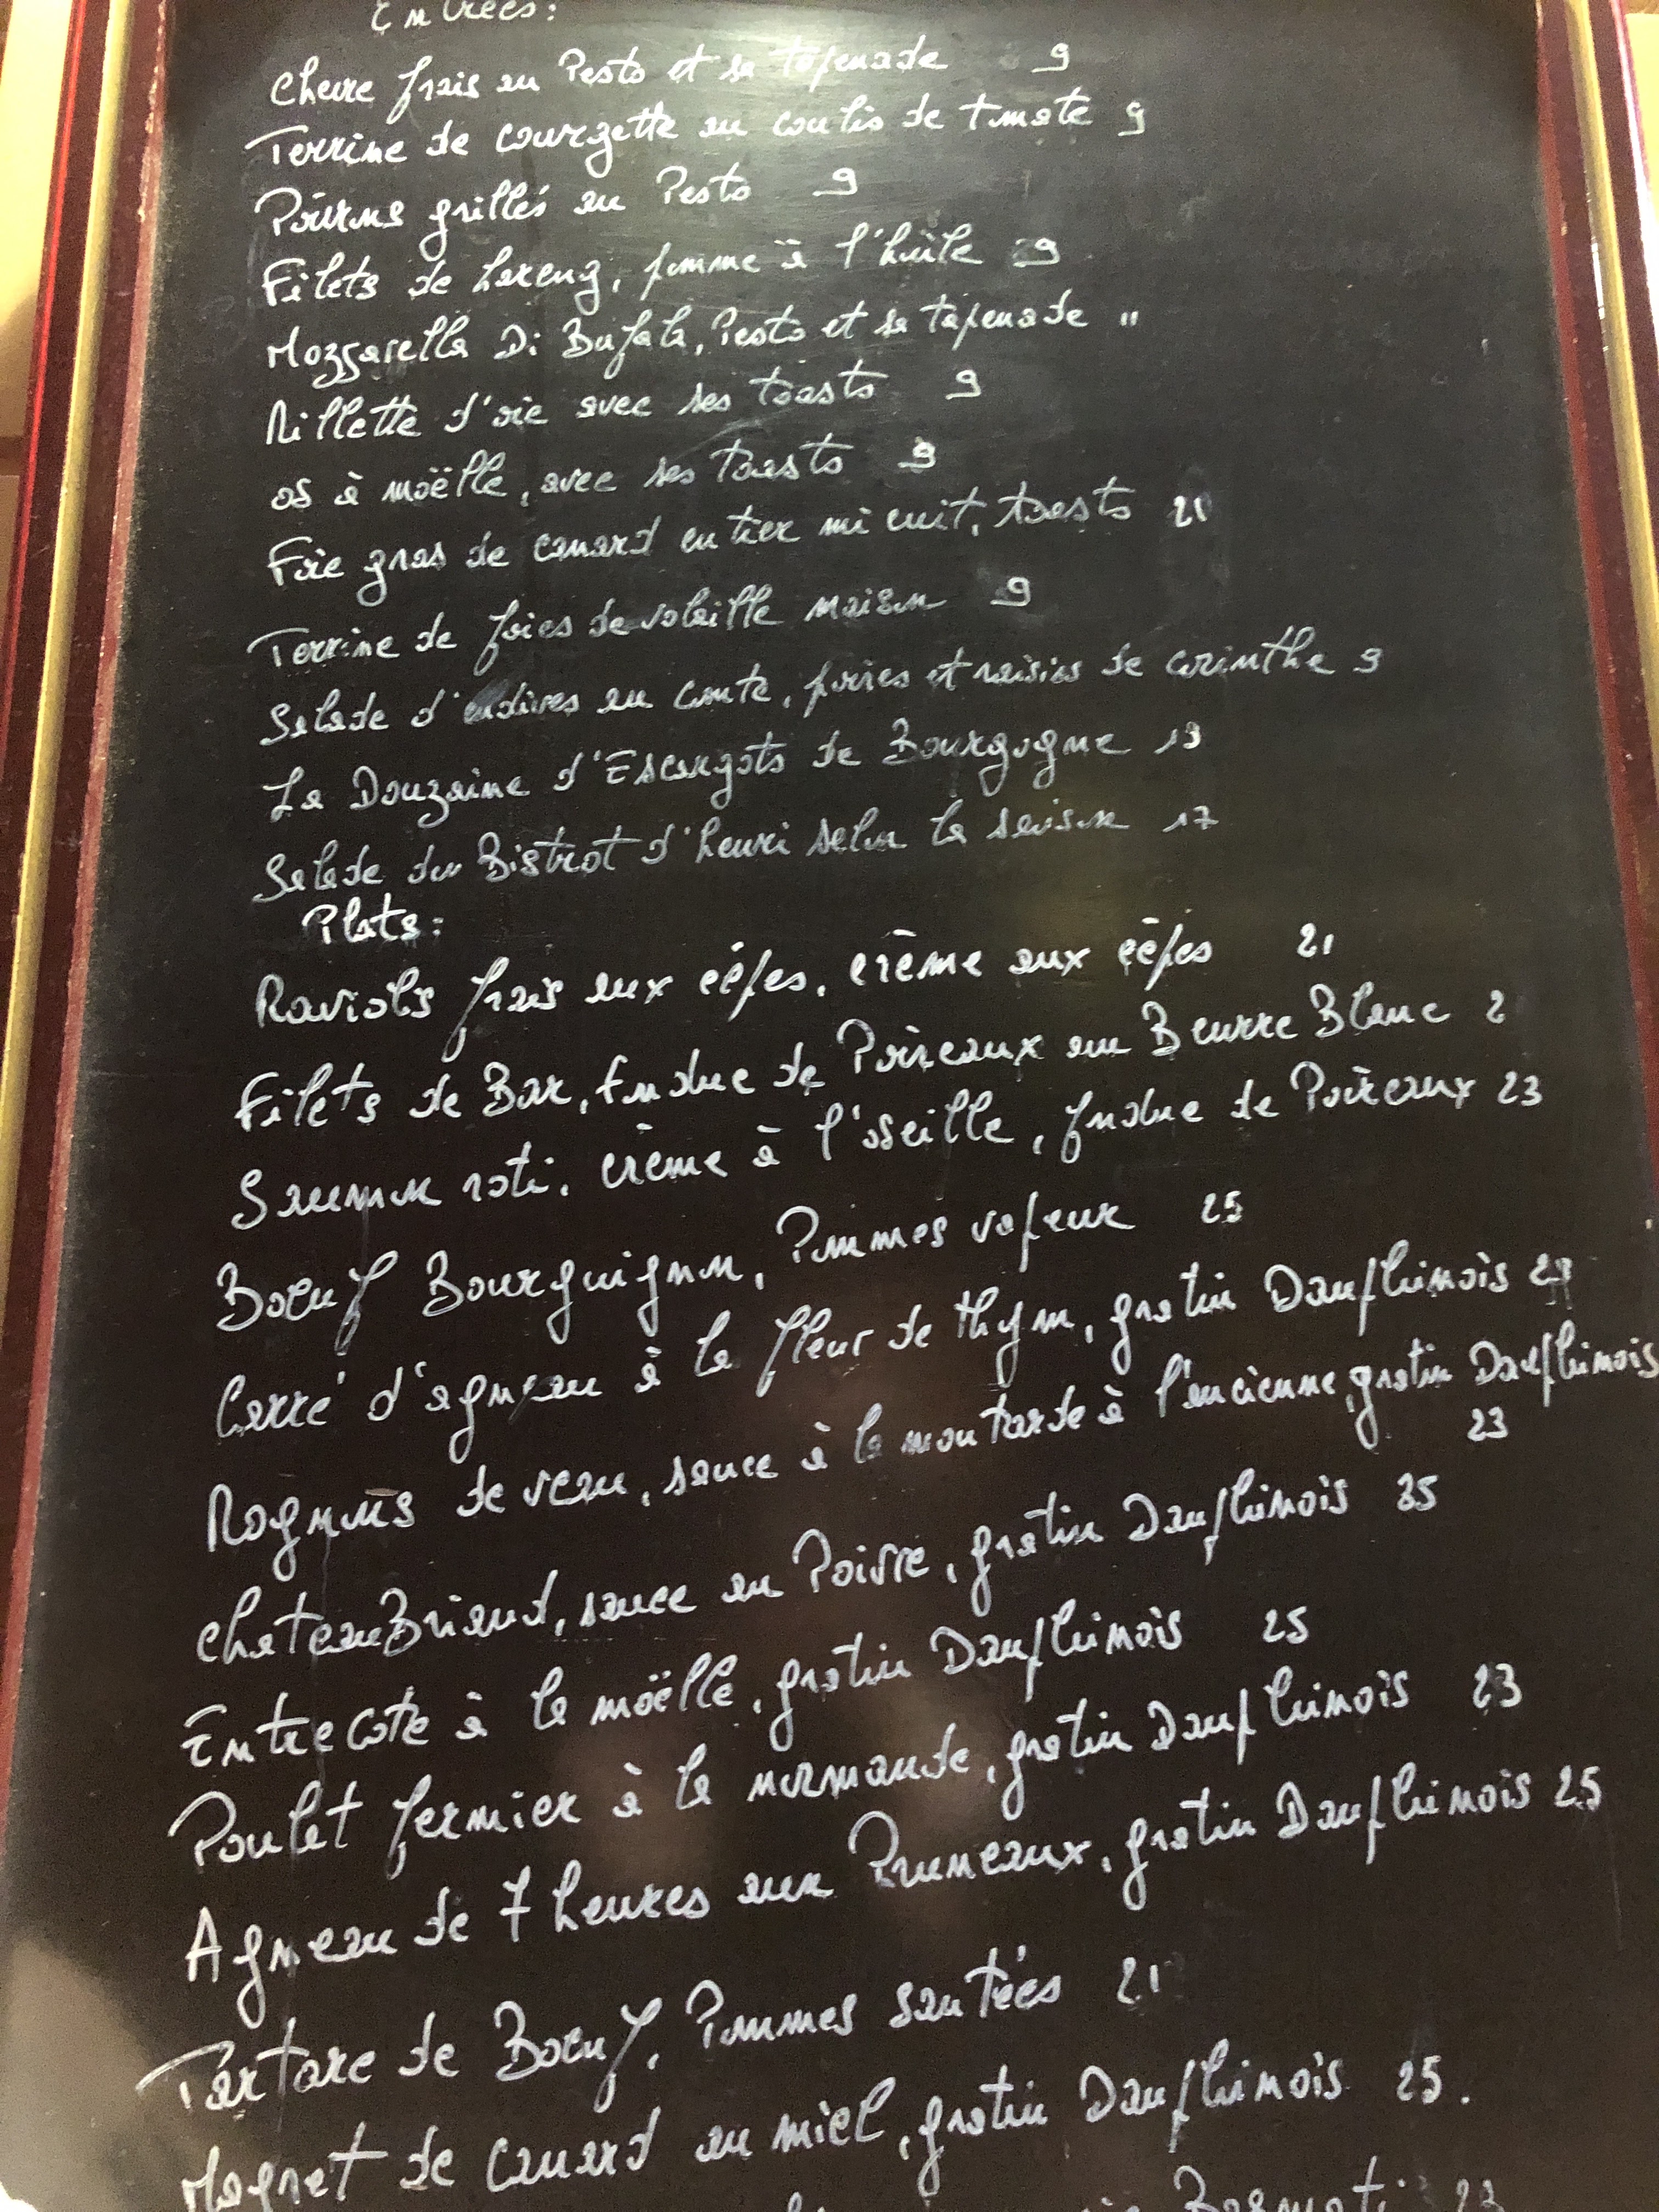 Entrées:
Chevre frais au Pesto et sa tapenade 9
Terrine de courgette au coulis de tomate 9
Poivrons grillés au Pesto 9
Filets de hareng, pomme à l'huile 9
Mozzarella Di Bufala, Pesto et sa tapenade 11
Rillette d'oie avec ses toasts 9
os à moëlle, avec ses toasts 9
Foie gras de canard entier mi cuit, toasts 21
Terrine de foies de volaille maison 9
Salade d'endives au comte, poires et raisins de corinthe 9
La Douzaine d'Escargots de Bourgogne 19
Salade du Bistrot d'henri selon la saison 17
Plats:
Raviolis frais aux cèpes, crème aux cèpes 21
Filets de Bar, fondue de Poireaux au Beurre Blanc 2
Saumon roti, crème à l'oseille, fondue de Poireaux 23
Boeuf Bourguignon, Pommes vapeur 25
Carré d'agneau à la fleur de thym, gratin Dauphinois
Rognons de veau, sauce à la moutarde à l'ancienne, gratin Dauphinois
23
chateauBriand, sauce au Poivre, gratin Dauphinois 35
Entrecote à la moëlle, gratin Dauphinois 25
Poulet fermier à la normande, gratin Dauphinois 23
Agneau de 7 heures aux Pruneaux, gratin Dauphinois 25
Tartare de Boeuf, Pommes sautées 21
Magret de canard au miel, gratin Dauphinois 25.
Basmati 23